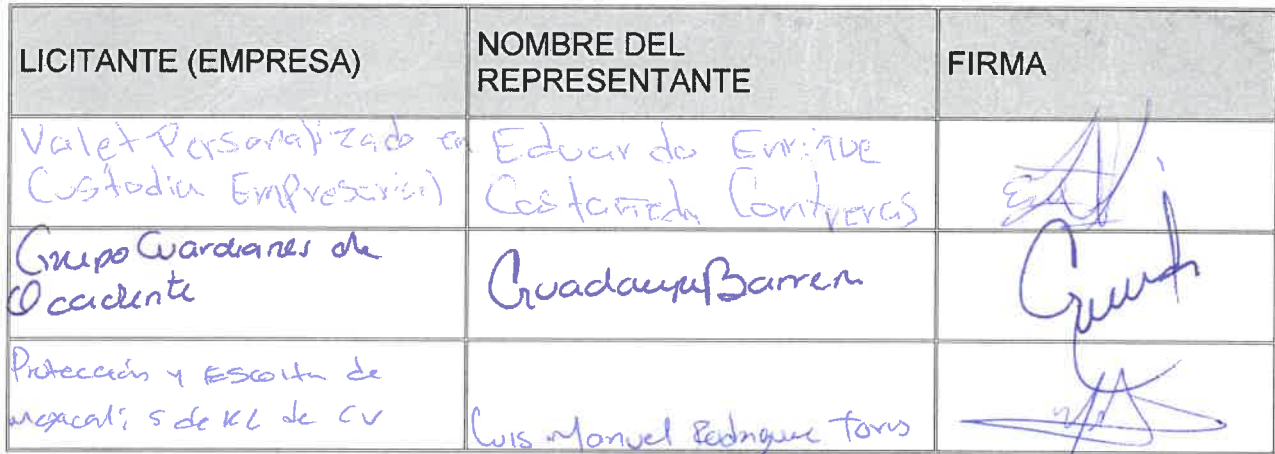 LICITANTE (EMPRESA)
NOMBRE DEL
REPRESENTANTE
FIRMA
Valet Personalizado en
Custodia Empresarial
Eduardo Enrique
Castañeda Contreras
Grupo Guardianes de
Occidente
Guadalupe Barrera
Protección y Escolta de
Mexicali S de RL de CV
Luis Manuel Rodriguez Torres